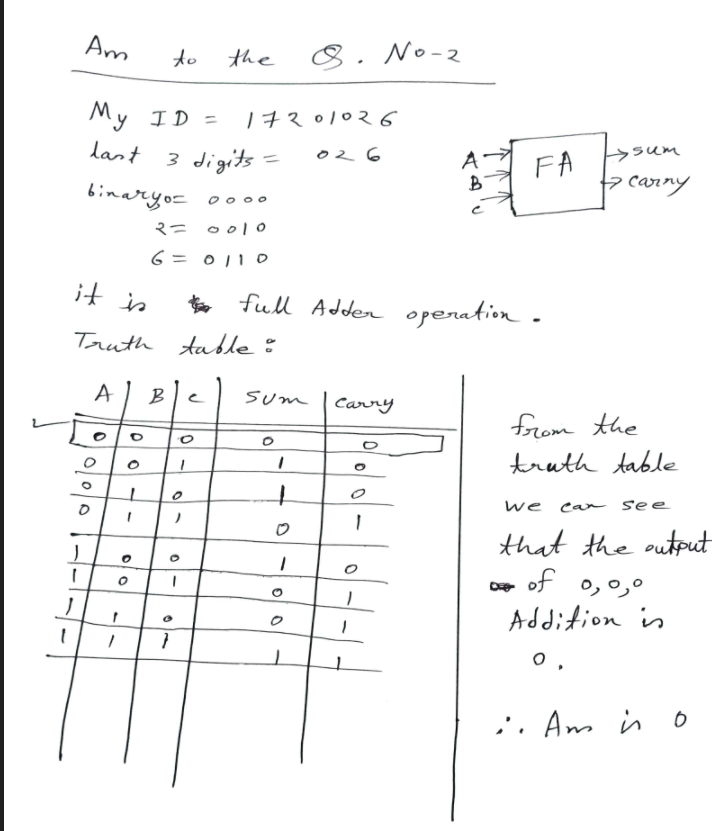 Ans to the Q. No-2
My ID = 17201026
last 3 digits = 026
binary 0= 0000
2= 0010
6= 0110
A
B
c
FA
sum
carry
it is full Adder operation.
Truth table:
A B c sum carry
0 0 0 0 0
0 0 1 1 0
0 1 0 1 0
0 1 1 0 1
1 0 0 1 0
1 0 1 0 1
1 1 0 0 1
1 1 1 1 1
from the
truth table
we can see
that the output
of 0,0,0
Addition is
0.
∴ Ans is 0